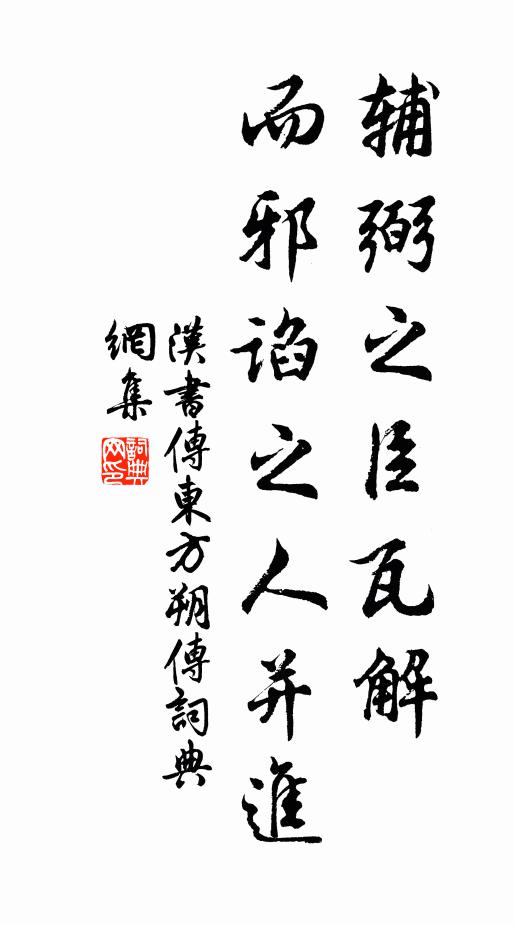 辅弼之臣瓦解
而邪谄之人并進
漢書傳東方朔傳詞典
網集
詞典
网印